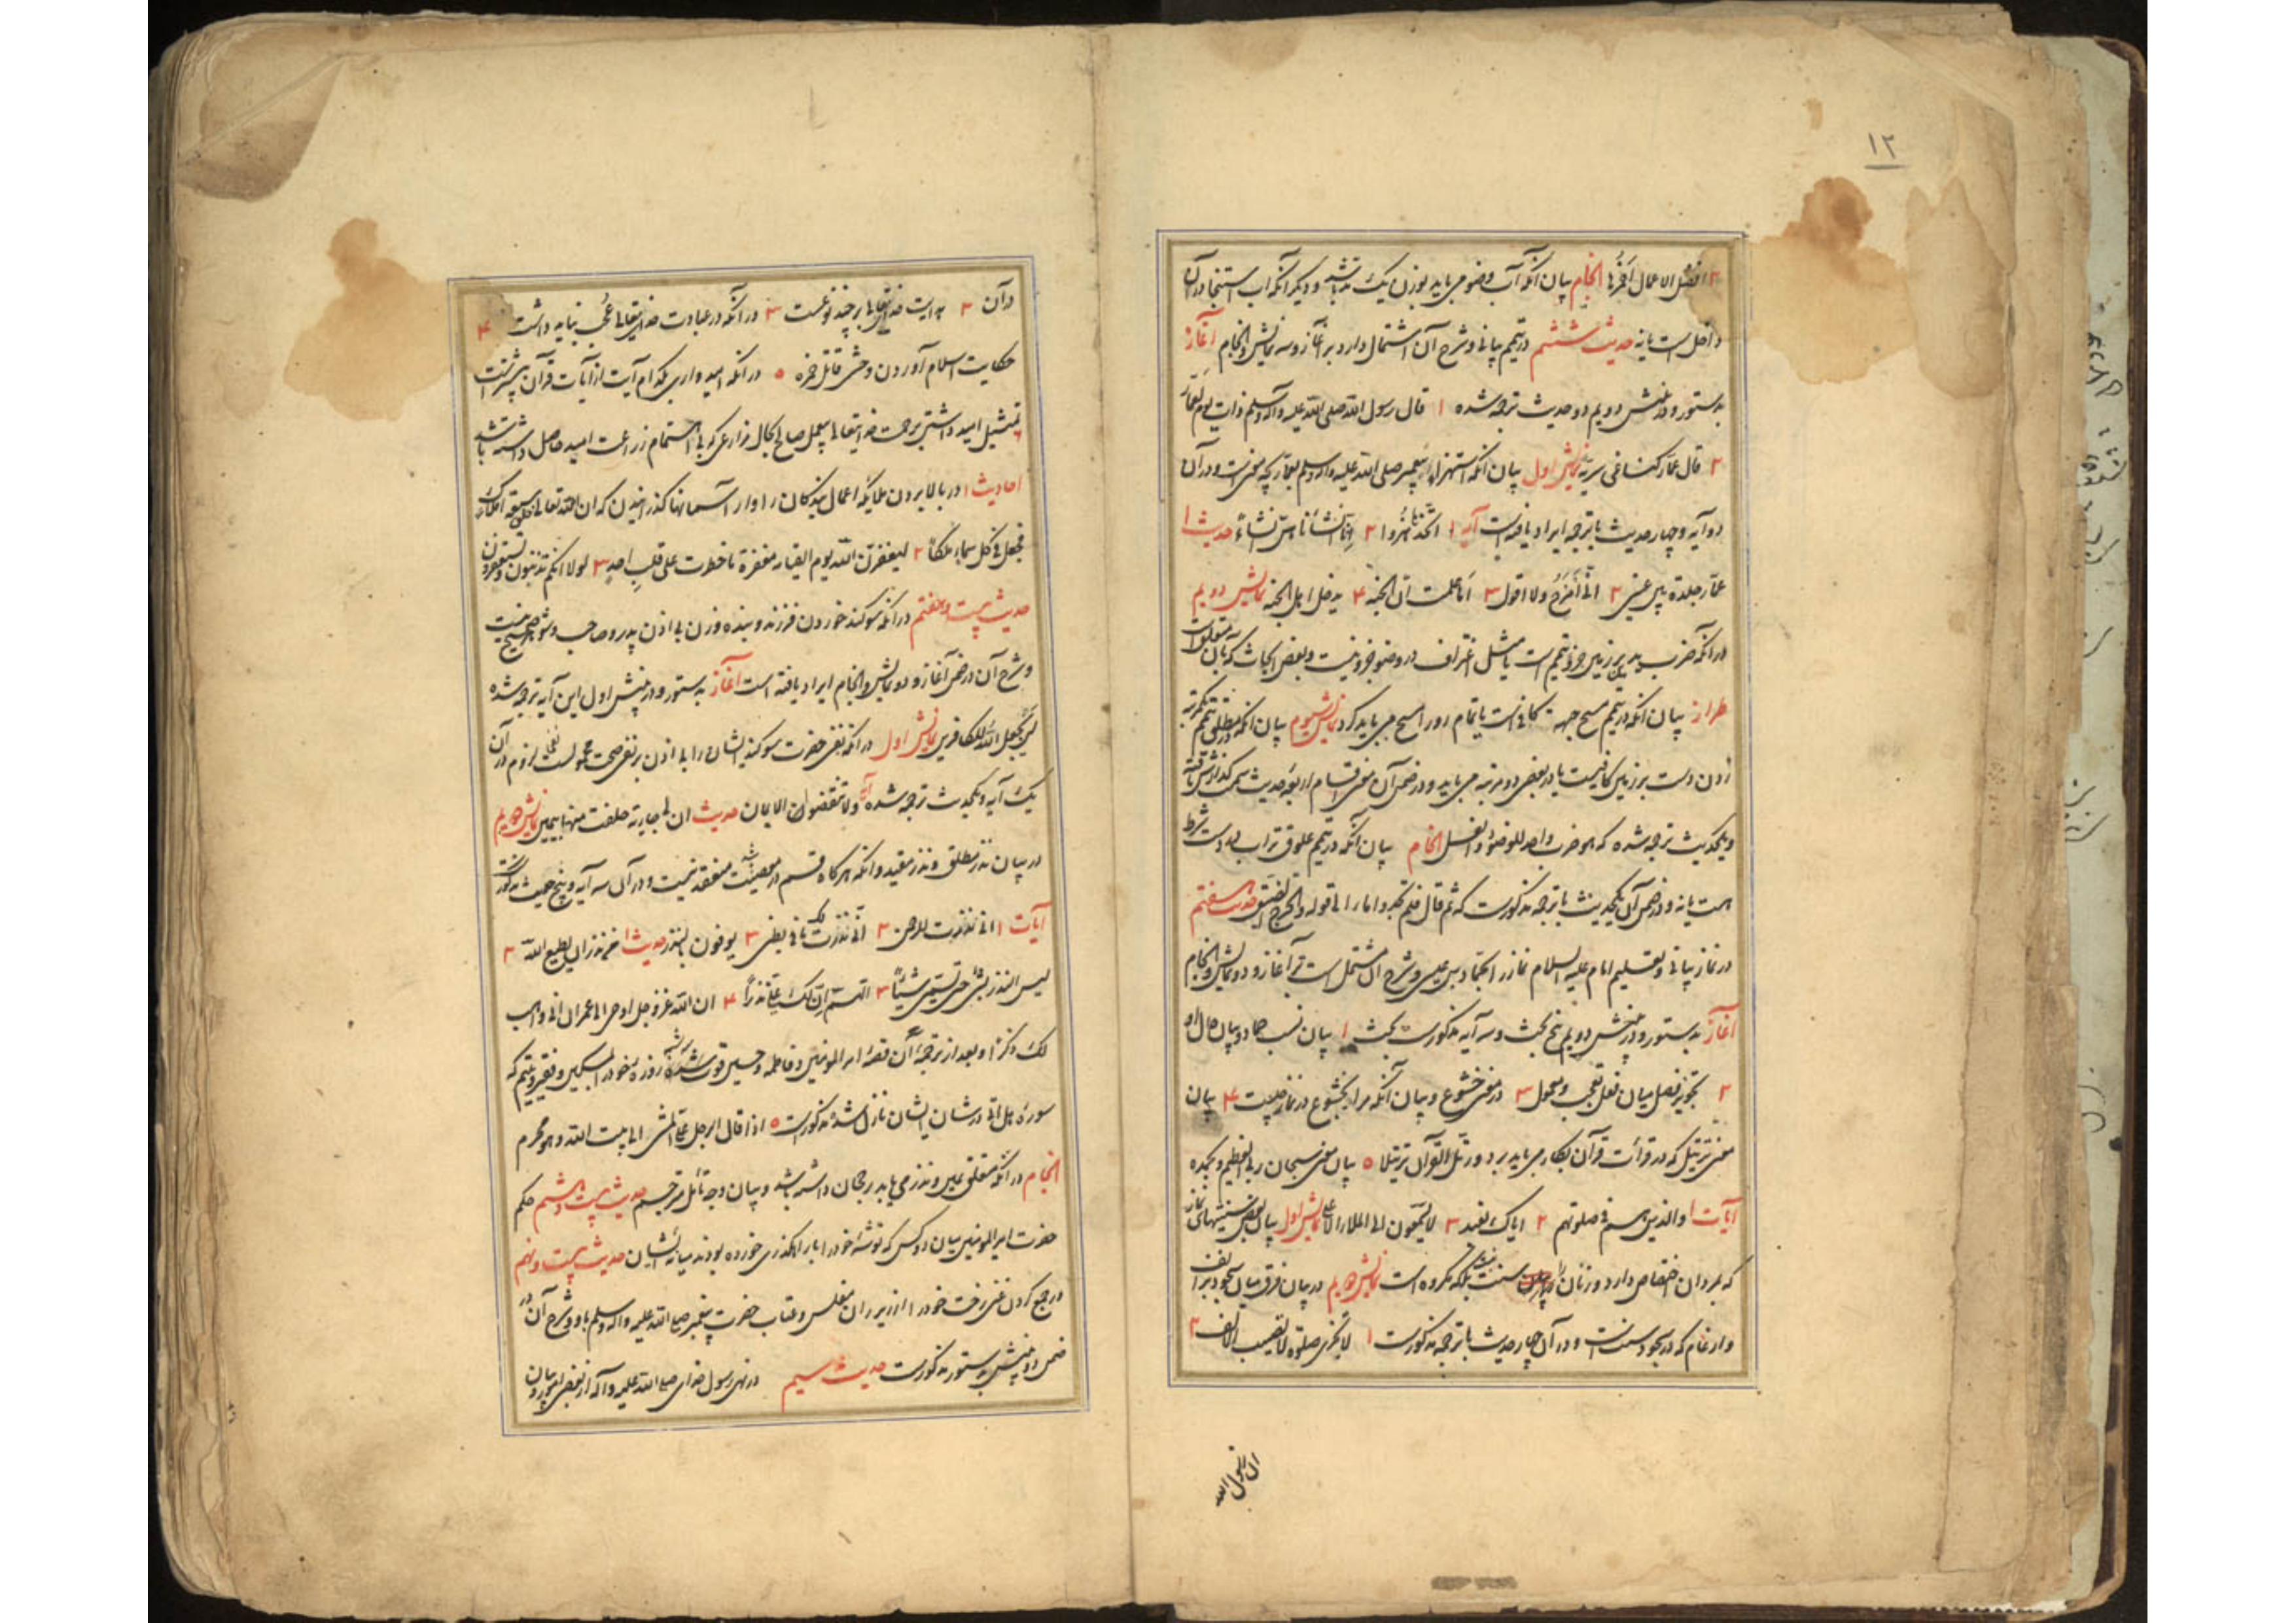 ۱۲
۲ افضل الاعمال احمزها انجام بیان آنکه آب وضو می باید بوزن یک مد باشد و دیگر آنکه آب استنجا در آن
داخل است یا نه حدیث ششم در تیمم بیانی و شرح آن اشتمال دارد بر آغاز و سه نمایش و انجام آغاز
بدستور و در منش دویم دو حدیث ترجمه شده ۱ قال رسول الله صلی الله علیه وآله وسلم ذات یوم لعمار
۲ قال عمار کنا فی سریة نمایش اول بیان آنکه استهزاء پیغمبر صلی الله علیه وآله وسلم بعمار بچه معنی است و در آن
دو آیه و چهار حدیث با ترجمه ایراد یافته است آیه ۱ اتتخذنا هزوا ۲ انا انشأناهن انشاءً حدیث ۱
عمار جلدة بین عینی ۲ انی امزح ولا اقول ۳ اما علمت ان الجنة ۴ یدخل اهل الجنة نمایش دویم
در آنکه ضرب ید بر زمین جزو تیمم است یا مثل اغتراف در وضو جزو نیست و بعض ابحاث که بآن متعلق است
طراز بیان آنکه در تیمم مسح جبهه کافی است یا تمام رو را مسح می باید کرد نمایش سیوم بیان آنکه در مطلق تیمم یکمرتبه
زدن دست بر زمین کافیست یا در بعضی دو مرتبه می باید و در ضمن آن معنی اقسام اربعه حدیث سمت گذارش یافته
و یکحدیث ترجمه شده که هو ضرب واحد للوضوء والغسل انجام بیان آنکه در تیمم علوق تراب بدست شرط
است یا نه و در ضمن آن یکحدیث با ترجمه مذکورست که ثم قال فلم تجدوا ماء الی قوله والحرج الضیق حدیث هفتم
در نماز بیانی و تعلیم امام علیه السلام نماز را بحماد بن عیسی و شرح آن مشتمل است بر آغاز و دو نمایش و انجام
آغاز بدستور و در منش دویم پنج بحث و سه آیه مذکورست بحث ۱ بیان نسب حماد و بیان حال او
۲ تجویز فصل میان فعل تعجب و معمول ۳ در معنی خشوع و بیان آنکه مراد بخشوع در نماز چیست ۴ بیان
معنی ترتیل که در قرائت قرآن بکار می باید برد و رتل القرآن ترتیلا ۵ بیان معنی سبحان ربی العظیم وبحمده
آیات ۱ والذین هم فی صلوتهم ۲ ایاک نعبد ۳ لا یسمعون الی الملاء الاعلی نمایش اول بیان بعضی سنتیهای نماز
که بمردان اختصاص دارد و زنان را سنت نیست بلکه مکروه است نمایش دویم در بیان فرق میان سجود بر انف
و ارغام که در سجود سنت است و در آن چهار حدیث با ترجمه مذکورست ۱ لا تجزی صلوة لا یصیب الانف ۲
ان رسول الله
در آن ۲ هدایت خدایتعالی بر چند نوعست ۳ در آنکه در عبادت خدایتعالی عجب نباید داشت ۴
حکایت اسلام آوردن وحشی قاتل حمزه ۵ در آنکه امیدواری بکدام آیت از آیات قرآن بیشترست
۶ تمثیل امید داشتن برحمت خدایتعالی بیعمل صالح بحال مزارعی که بی اهتمام زراعت امید حاصل داشته باشد
احادیث ۱ در بالا بردن ملایکه اعمال بندگان را و از آسمانها گذرانیدن که ان الله تعالی خلق سبعة املاک
فجعل فی کل سماء ملکاً ۲ لیغفرن الله یوم القیمة مغفرة ما خطرت علی قلب احدٍ ۳ لولا انکم تذنبون وتستغفرون
حدیث بیست و هفتم در آنکه سوگند خوردن فرزند و بنده و زن بی اذن پدر و صاحب و شوهر صحیح نیست
و شرح آن در ضمن آغاز و دو نمایش و انجام ایراد یافته است آغاز بدستور و در منش اول این آیه ترجمه شده
لن یجعل الله للکافرین نمایش اول در آنکه نفی حضرت سوگند ایشان را بی اذن بر نفی صحت محمولست نه نفی لزوم و در آن
یک آیه و یکحدیث ترجمه شده آیه ولا تنقضوا الایمان حدیث ان لی جاریة حلفت منها بیمین نمایش دویم
در بیان نذر مطلق و نذر مقید و آنکه هرگاه قسم در معصیت باشد منعقد نیست و در آن سه آیه و پنج حدیث مذکورست
آیات ۱ انی نذرت للرحمن ۲ انی نذرت لک ما فی بطنی ۳ یوفون بالنذر حدیث ۱ من نذر ان یطیع الله ۲
لیس النذر بشئ حتی یسمی شیئاً ۳ ان لک علی نذراً ۴ ان الله عز وجل اوحی الی عمران انی واهب
لک ذکرا و بعد از ترجمهٔ آن قصهٔ امیر المومنین و فاطمه و حسین قوت سه روزه خود را بمسکین و فقیر و یتیم که
سورهٔ هل اتی در شان ایشان نازل شده مذکورست ۵ اذا قال الرجل علی المشی الی بیت الله وهو محرم
انجام در آنکه متعلق یمین و نذر می باید رجحان داشته باشد و بیان وجه تامل مترجم حدیث بیست و هشتم حکم
حضرت امیر المومنین میان دو کس که توشهٔ خود را با راهگذری خورده بودند میانه ایشان حدیث بیست و نهم
در جمع کردن غنی رخت خود را از زیر ران مفلس و عتاب حضرت پیغمبر صلی الله علیه وآله وسلم باو و شرح آن در
ضمن دو منش بدستور مذکورست حدیث سیم در نهی رسول خدای صلی الله علیه وآله از بعض امور و بیان